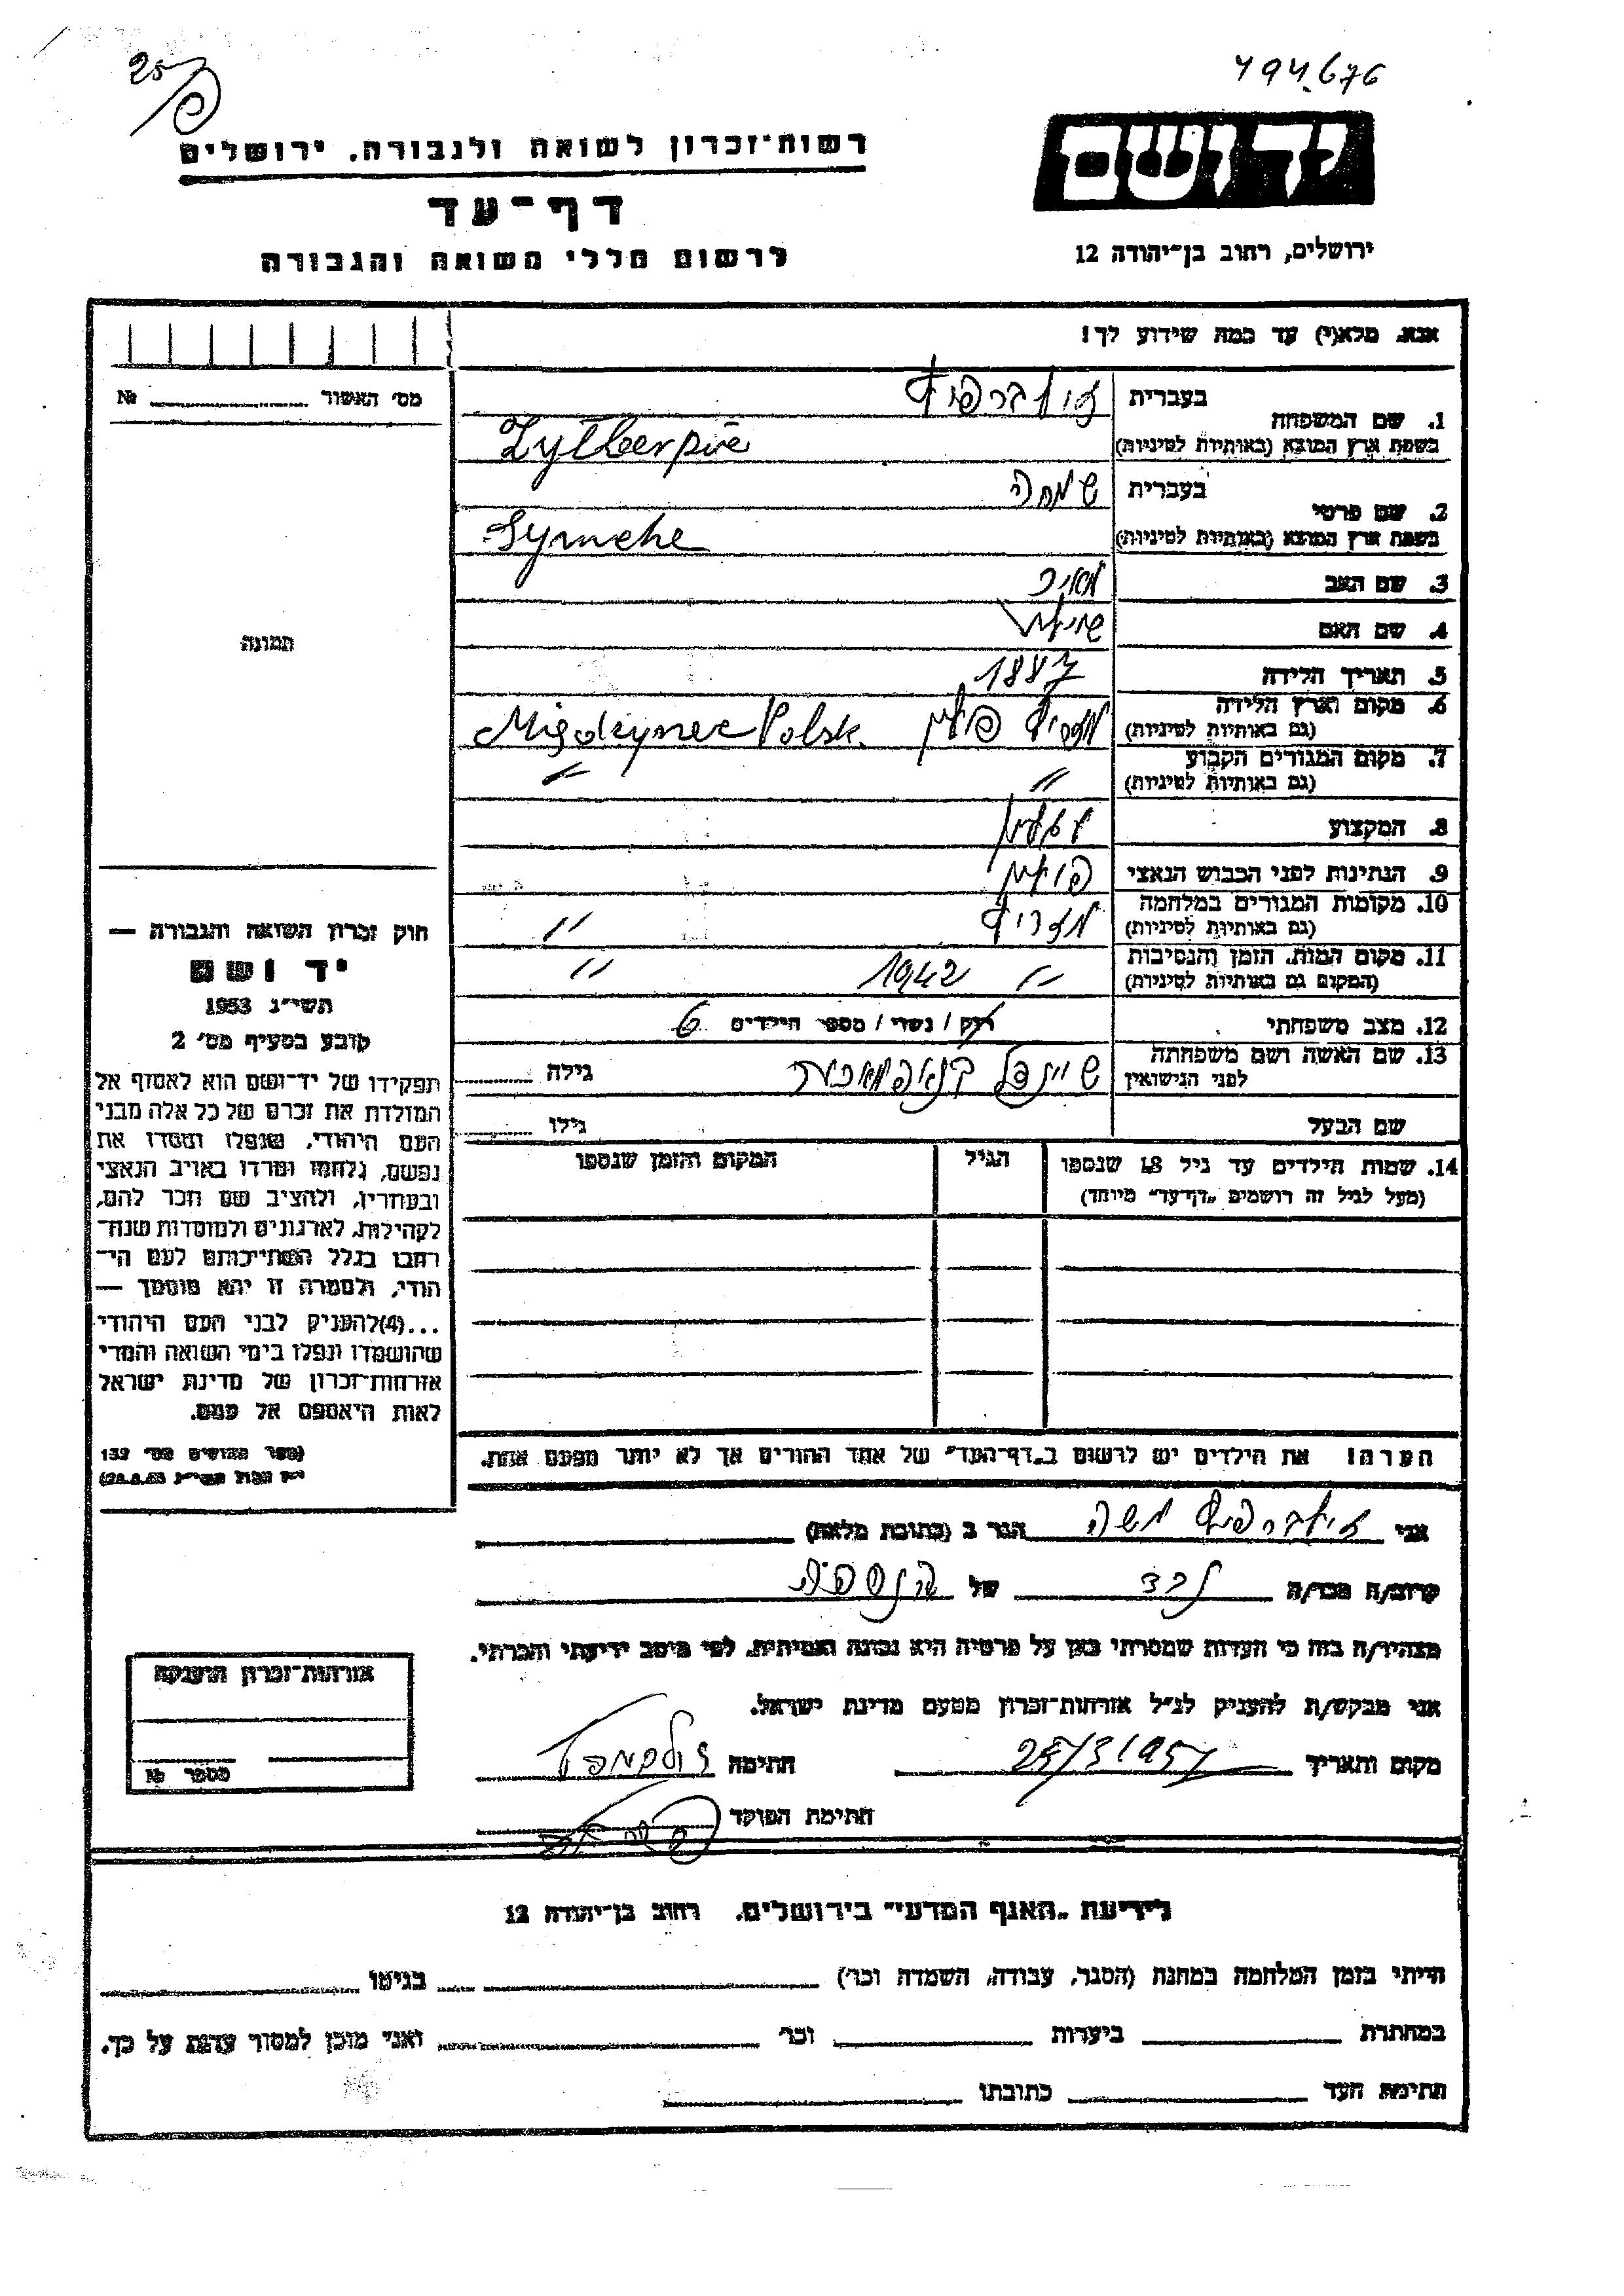 494.676
25
יד ושם
רשות־זכרון לשואה ולגבורה. ירושלים
דף־עד
לרשום חללי השואה והגבורה
ירושלים, רחוב בן־יהודה 12
אנא. מלא(י) עד כמה שידוע לך!
מס׳ האשור № 
1. שם המשפחה
בעברית זילברפיין
בשפת ארץ המוצא (באותיות לטיניות)
2. שם פרטי
בעברית שמחה
בשפת ארץ המוצא (באותיות לטיניות) Symche
3. שם האב מאיר
4. שם האם
5. תאריך הלידה 1887
6. מקום וארץ הלידה פולין
(גם באותיות לטיניות) Polsk
7. מקום המגורים הקבוע
(גם באותיות לטיניות) -"- -"-
8. המקצוע
9. הנתינות לפני הכבוש הנאצי פולין
10. מקומות המגורים במלחמה
(גם באותיות לטיניות) -"-
11. מקום המות. הזמן והנסיבות
(המקום גם באותיות לטיניות) -"- 1942 -"-
12. מצב משפחתי רוק / נשוי / מספר הילדים 6
13. שם האשה ושם משפחתה
לפני הנישואין גילה
שם הבעל גילו
14. שמות הילדים עד גיל 18 שנספו
(מעל לגיל זה רושמים "דף־עד" מיוחד)
הגיל
המקום והזמן שנספו
הערה! את הילדים יש לרשום ב"דף־העד" של אחד ההורים אך לא יותר מפעם אחת.
תמונה
חוק זכרון השואה והגבורה —
יד ושם
תשי״ג 1953
קובע בסעיף מס׳ 2
תפקידו של יד־ושם הוא לאסוף אל
המולדת את זכרם של כל אלה מבני
העם היהודי, שנפלו ומסרו את
נפשם, נלחמו ומרדו באויב הנאצי
ובעוזריו, ולהציב שם וזכר להם,
לקהילות, לארגונים ולמוסדות שנח־
רבו בגלל השתייכותם לעם הי־
הודי, ולמטרה זו יהא מוסמך —
...(4)להעניק לבני העם היהודי
שהושמדו ונפלו בימי השואה והמרי
אזרחות־זכרון של מדינת ישראל
לאות היאספם אל עמם.
(ספר החוקים מס׳ 132
אני זילברפיין משה הגר ב (כתובת מלאה)
קרוב/ה מכר/ה נכד של הנספה
מצהיר/ה בזה כי העדות שמסרתי כאן על פרטיה היא נכונה ואמיתית, לפי מיטב ידיעתי והכרתי.
אני מבקש/ת להעניק לנ״ל אזרחות־זכרון מטעם מדינת ישראל.
מקום ותאריך חתימה
חתימת הפוקד
אזרחות־זכרון הוענקה
מספר №
לידיעת "האגף המדעי" בירושלים. רחוב בן־יהודה 12
הייתי בזמן המלחמה במחנה (הסגר, עבודה, השמדה וכו׳) בגיטו
במחתרת ביערות וכו׳ ואני מוכן למסור עדות על כך.
חתימת העד כתובתו